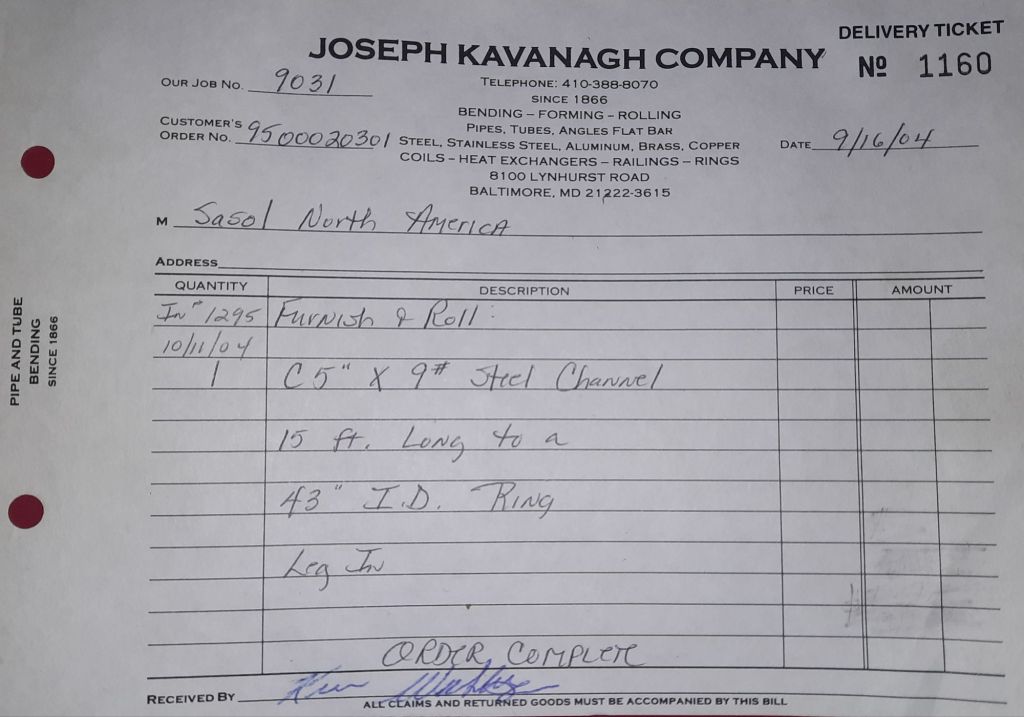 DELIVERY TICKET
JOSEPH KAVANAGH COMPANY
Nº 1160
OUR JOB NO. 9031
TELEPHONE: 410-388-8070
SINCE 1866
BENDING – FORMING – ROLLING
PIPES, TUBES, ANGLES FLAT BAR
CUSTOMER'S
ORDER NO. 9500020301
STEEL, STAINLESS STEEL, ALUMINUM, BRASS, COPPER
DATE 9/16/04
COILS – HEAT EXCHANGERS – RAILINGS – RINGS
8100 LYNHURST ROAD
BALTIMORE, MD 21222-3615
M Sasol North America
ADDRESS
QUANTITY DESCRIPTION PRICE AMOUNT
In# 1295 Furnish & Roll:
10/11/04
1 C 5" X 9# Steel Channel
15 ft. Long to a
43" I.D. Ring
Leg In
ORDER COMPLETE
RECEIVED BY
ALL CLAIMS AND RETURNED GOODS MUST BE ACCOMPANIED BY THIS BILL
PIPE AND TUBE
BENDING
SINCE 1866